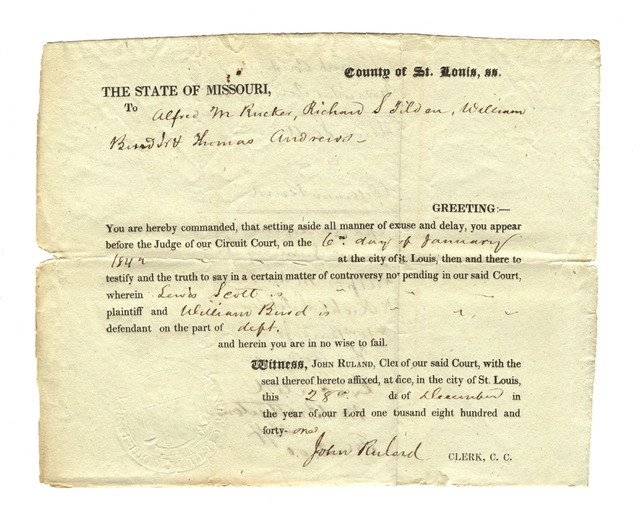 County of St. Louis, ss.
THE STATE OF MISSOURI,
To Alfred M Rucker, Richard S Tilden, William
Burd Jr & Thomas Andrews —
GREETING:—
You are hereby commanded, that setting aside all manner of excuse and delay, you appear
before the Judge of our Circuit Court, on the 6th day of January
1842 at the city of St. Louis, then and there to
testify and the truth to say in a certain matter of controversy no pending in our said Court,
wherein Lewis Scott is
plaintiff and William Burd is
defendant on the part of deft.
and herein you are in no wise to fail.
Witness, JOHN RULAND, Cler of our said Court, with the
seal thereof hereto affixed, at fice, in the city of St. Louis,
this 28th da of December in
the year of our Lord one tousand eight hundred and
forty-one
John Ruland CLERK, C. C.